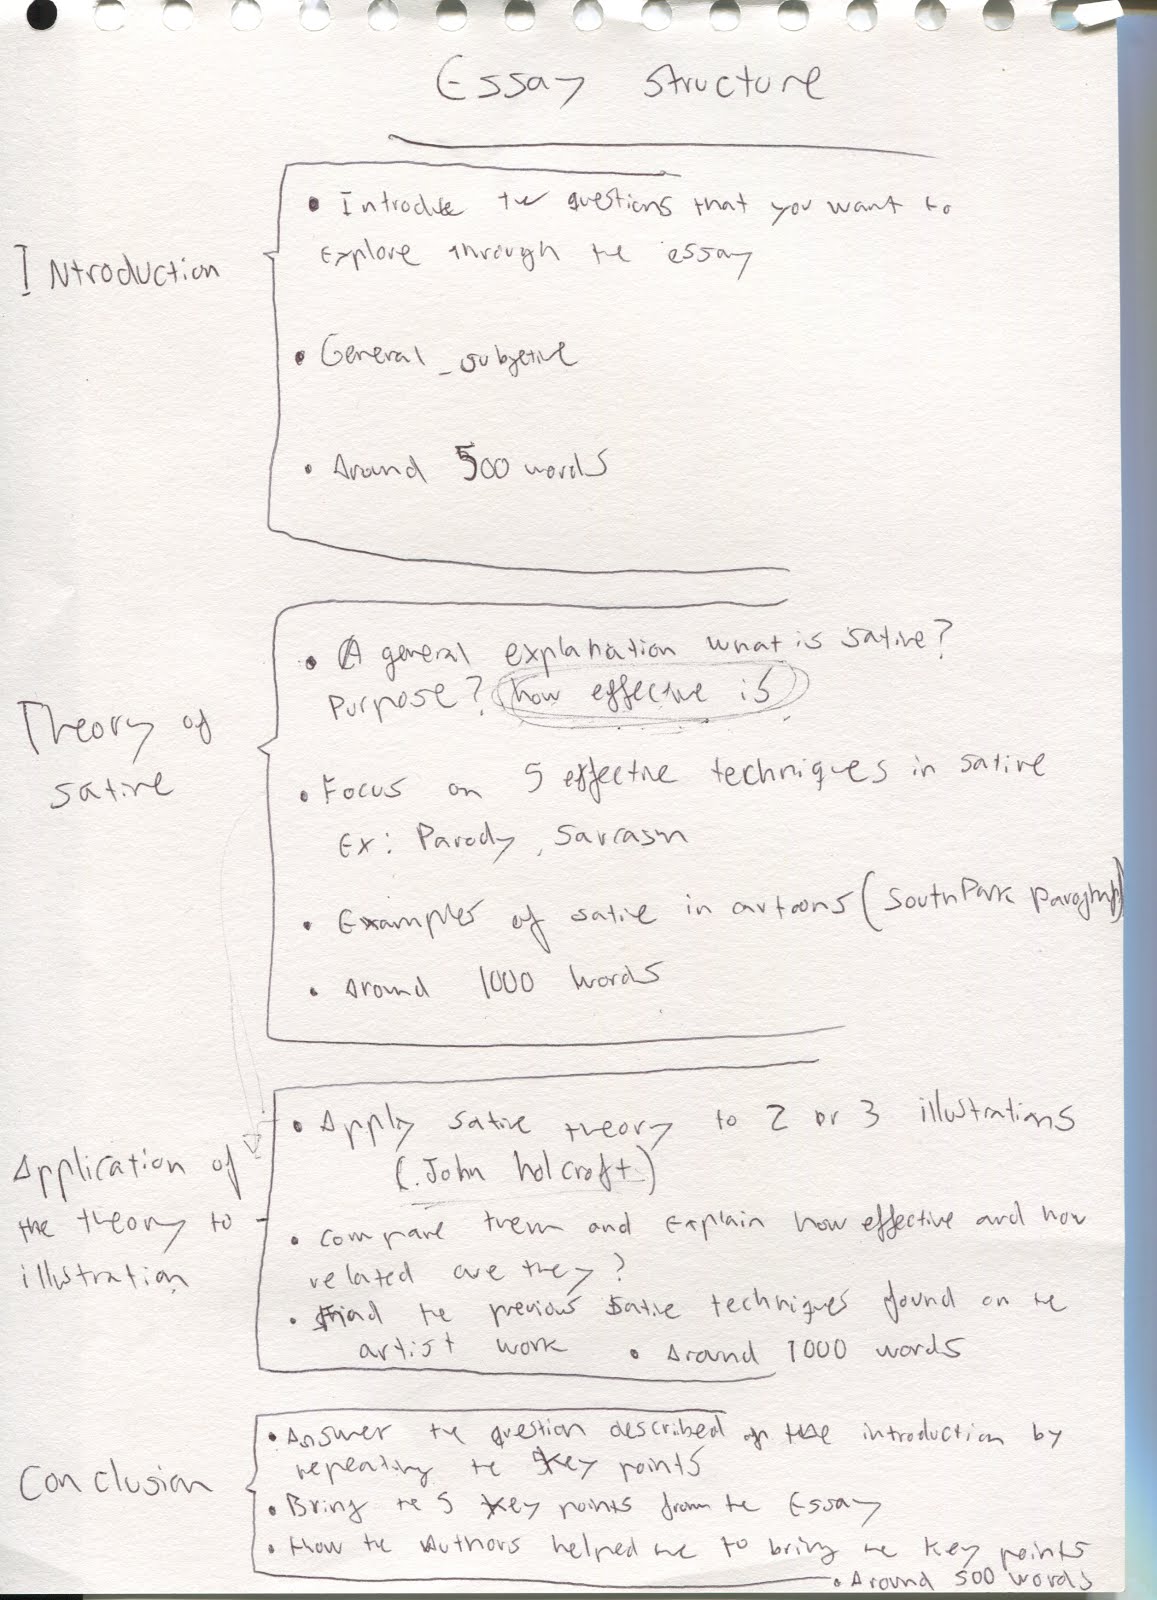 Essay structure
Introduction
• Introduce the questions that you want to
explore through the essay
• General _ subjetive
• Around 500 words
Theory of
satire
• A general explanation what is satire?
Purpose? how effective is
• Focus on 5 effective techniques in satire
Ex: Parody, Sarcasm
• Examples of satire in cartoons (SouthPark paragraph)
• Around 1000 words
Application of
the theory to
illustration
• Apply satire theory to 2 or 3 illustrations
(John holcroft)
• compare them and explain how effective and how
related are they?
• Find the previous satire techniques found on the
artist work • Around 1000 words
Conclusion
• Answer the question described on the introduction by
repeating the key points
• Bring the 5 key points from the Essay
• How the Authors helped me to bring the key points
• Around 500 words